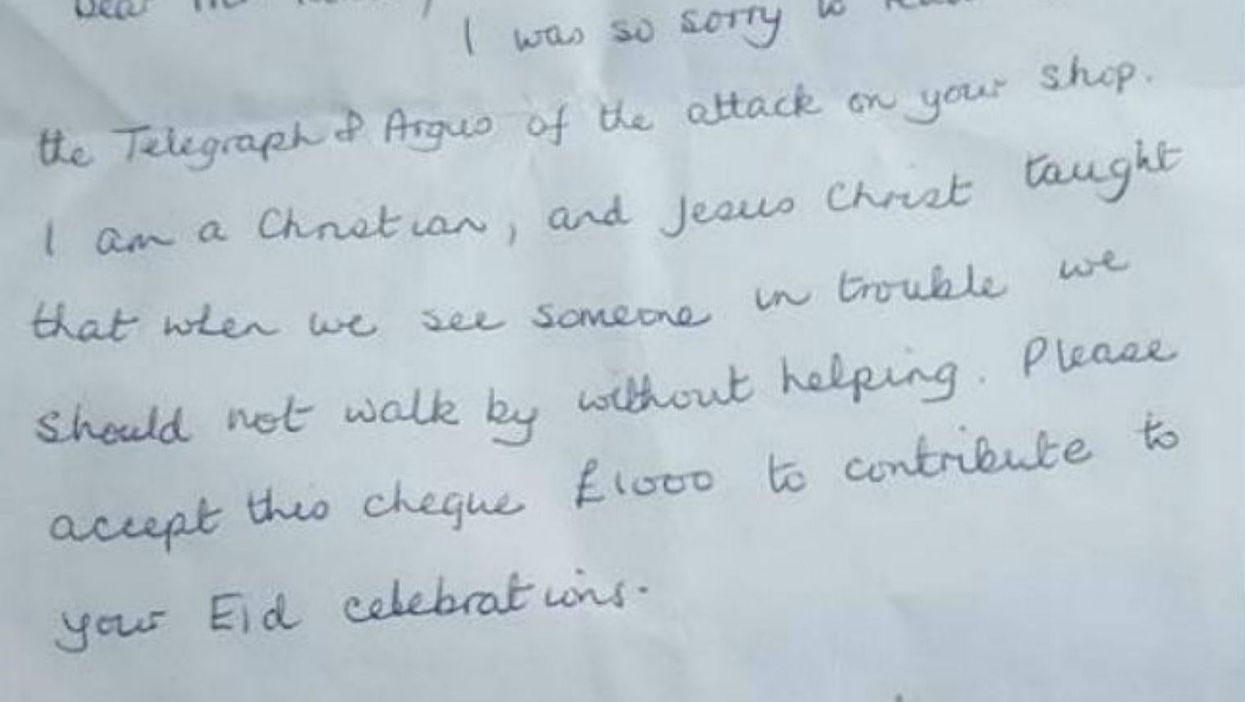 Dear
I was so sorry to
the Telegraph & Argus of the attack on your shop.
I am a Christian, and Jesus Christ taught
that when we see someone in trouble we
should not walk by without helping. Please
accept this cheque £1000 to contribute to
your Eid celebrations.